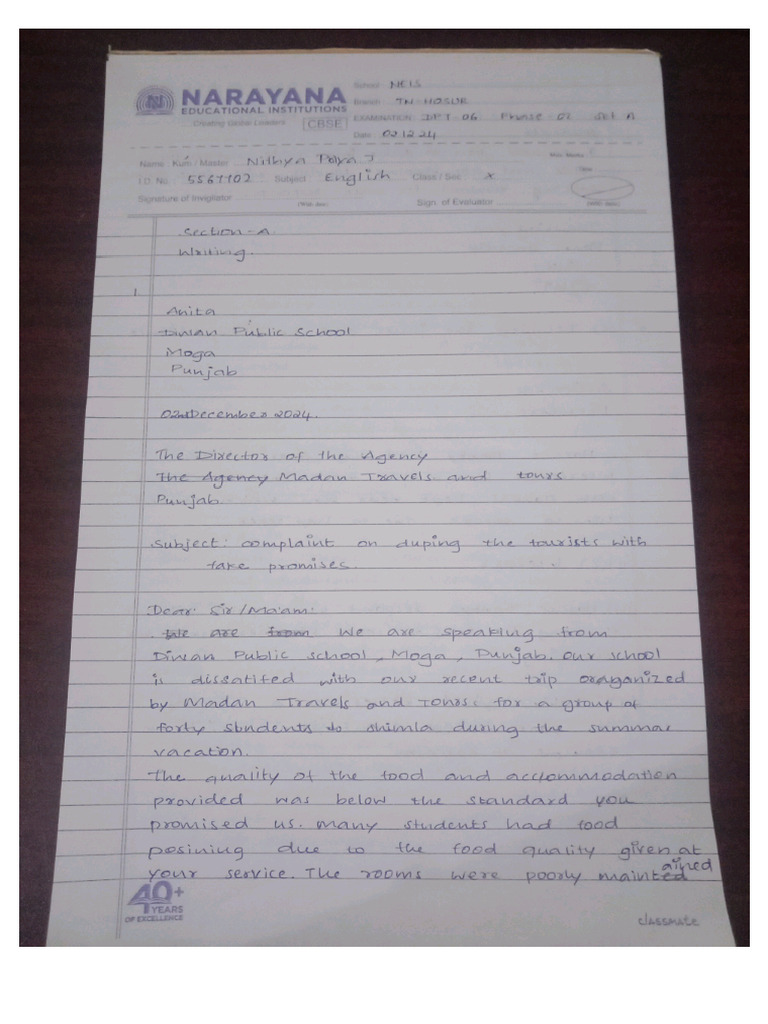 NARAYANA
EDUCATIONAL INSTITUTIONS
Creating Global Leaders CBSE
School NEIS
Branch TN HOSUR
EXAMINATION DFT 06 Phase 02 Set A
Date 02 12 24
Name Kum / Master Nithya J
I.D. No. 5567702 Subject English Class / Sec X
Signature of Invigilator Sign. of Evaluator
Section-A
Writing.
1.
Anita
Diwan Public School
Moga
Punjab
02nd December 2024.
The Director of the Agency
The Agency Madan Travels and tours
Punjab.
Subject: complaint on duping the tourists with
fake promises.
Dear Sir/Ma'am:
We are from We are speaking from
Diwan Public school, Moga, Punjab. Our school
is dissatifed with our recent trip oraganized
by Madan Travels and Tours: for a group of
forty students to shimla during the summar
vacation.
The quality of the food and accommodation
provided was below the standard you
promised us. Many students had food
posining due to the food quality given at
your service. The rooms were poorly maintained
40+
YEARS
OF EXCELLENCE
classmate